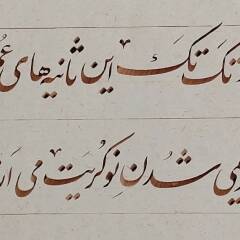 تک تک این ثانیه های
شدن نوکریت می